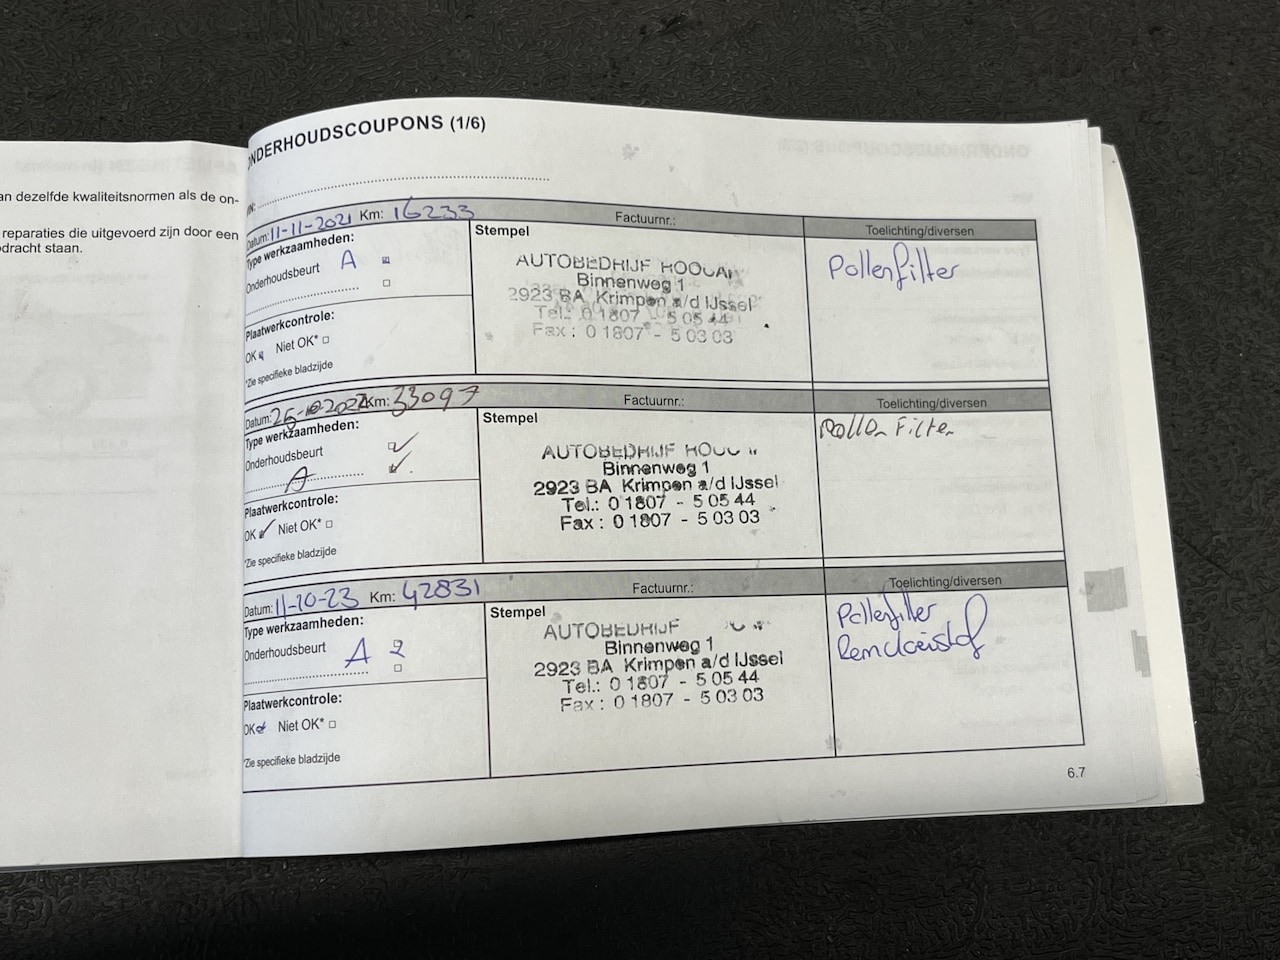 an dezelfde kwaliteitsnormen als de on-
reparaties die uitgevoerd zijn door een
dracht staan.
ONDERHOUDSCOUPONS (1/6)
Datum: 11-11-2021 Km: 16233 Factuurnr.: Toelichting/diversen
Type werkzaamheden:
Onderhoudsbeurt A
Plaatwerkcontrole:
OK Niet OK*
*Zie specifieke bladzijde
Stempel
AUTOBEDRIJF
Binnenweg 1
2923 BA Krimpen a/d IJssel
Tel.: 0 1807 - 5 05 44
Fax : 0 1807 - 5 03 03
Pollenfilter
Datum: Km: 33097 Factuurnr.: Toelichting/diversen
Type werkzaamheden:
Onderhoudsbeurt
A
Plaatwerkcontrole:
OK Niet OK*
*Zie specifieke bladzijde
Stempel
AUTOBEDRIJF
Binnenweg 1
2923 BA Krimpen a/d IJssel
Tel.: 0 1807 - 5 05 44
Fax : 0 1807 - 5 03 03
Pollen Filter
Datum: 11-10-23 Km: 42831 Factuurnr.: Toelichting/diversen
Type werkzaamheden:
Onderhoudsbeurt
A
Plaatwerkcontrole:
OK Niet OK*
*Zie specifieke bladzijde
Stempel
AUTOBEDRIJF
Binnenweg 1
2923 BA Krimpen a/d IJssel
Tel.: 0 1807 - 5 05 44
Fax : 0 1807 - 5 03 03
Pollenfilter
Remvloeistof
6.7